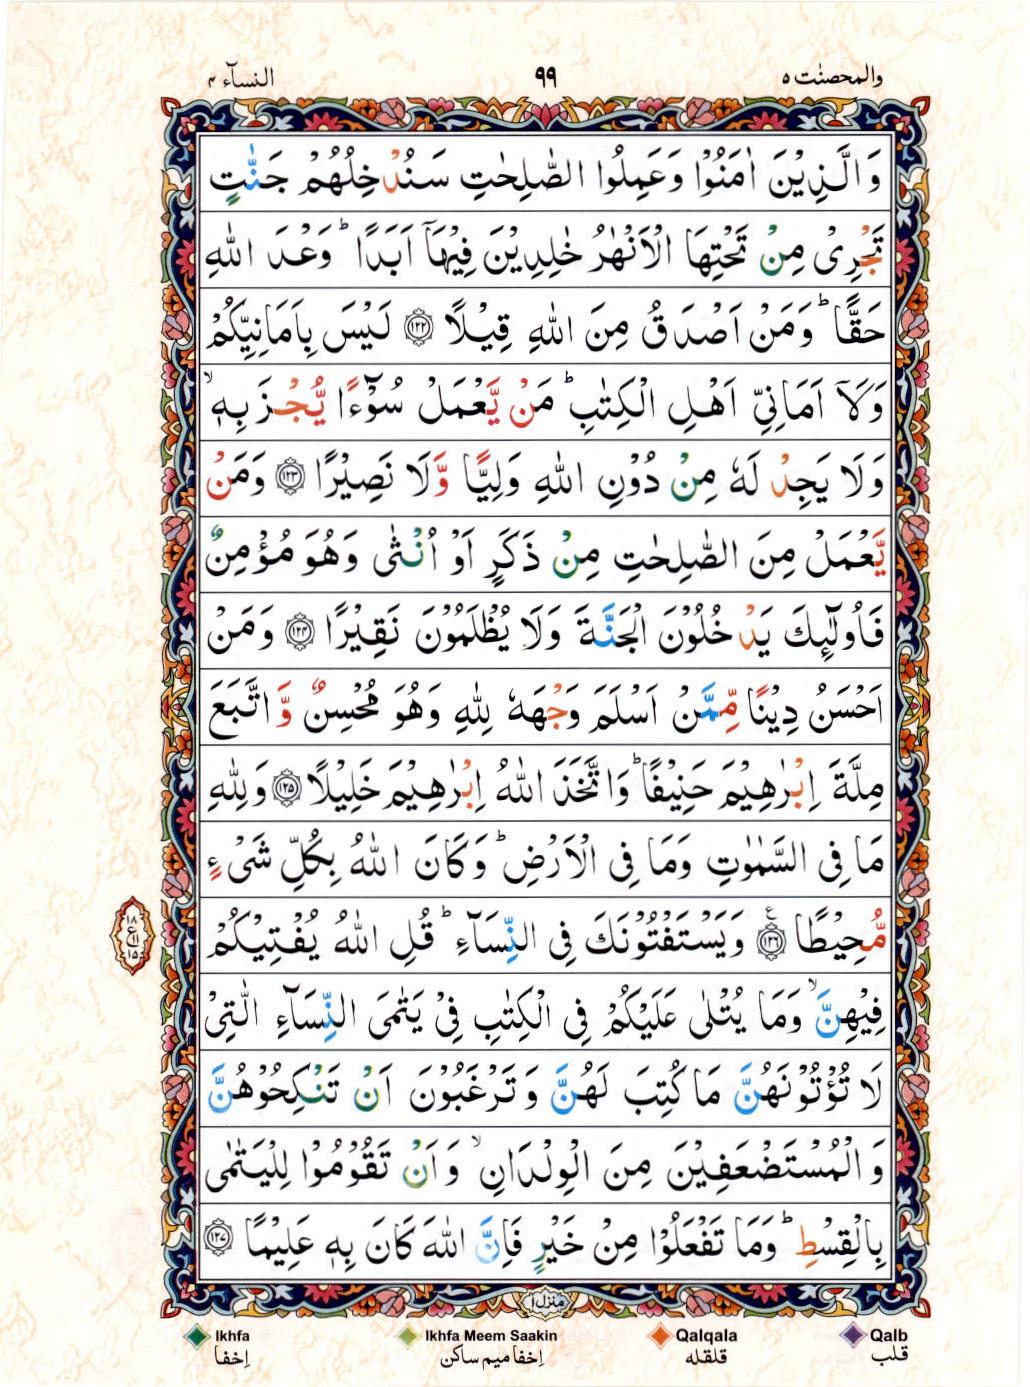 والمحصنٰت ٥ ٩٩ النسآء ٤
وَالَّذِیْنَ اٰمَنُوْا وَعَمِلُوا الصّٰلِحٰتِ سَنُدْخِلُهُمْ جَنّٰتٍ
تَجْرِیْ مِنْ تَحْتِهَا الْاَنْهٰرُ خٰلِدِیْنَ فِیْهَاۤ اَبَدًا ؕ وَعْدَ اللّٰهِ
حَقًّا ؕ وَمَنْ اَصْدَقُ مِنَ اللّٰهِ قِیْلًا ﴿۱۲۲﴾ لَیْسَ بِاَمَانِیِّكُمْ
وَلَاۤ اَمَانِیِّ اَهْلِ الْكِتٰبِ ؕ مَنْ یَّعْمَلْ سُوْٓءًا یُّجْزَ بِهٖ ۙ
وَلَا یَجِدْ لَهٗ مِنْ دُوْنِ اللّٰهِ وَلِیًّا وَّلَا نَصِیْرًا ﴿۱۲۳﴾ وَمَنْ
یَّعْمَلْ مِنَ الصّٰلِحٰتِ مِنْ ذَكَرٍ اَوْ اُنْثٰی وَهُوَ مُؤْمِنٌ
فَاُولٰٓئِكَ یَدْخُلُوْنَ الْجَنَّةَ وَلَا یُظْلَمُوْنَ نَقِیْرًا ﴿۱۲۴﴾ وَمَنْ
اَحْسَنُ دِیْنًا مِّمَّنْ اَسْلَمَ وَجْهَهٗ لِلّٰهِ وَهُوَ مُحْسِنٌ وَّاتَّبَعَ
مِلَّةَ اِبْرٰهِیْمَ حَنِیْفًا ؕ وَاتَّخَذَ اللّٰهُ اِبْرٰهِیْمَ خَلِیْلًا ﴿۱۲۵﴾ وَلِلّٰهِ
مَا فِی السَّمٰوٰتِ وَمَا فِی الْاَرْضِ ؕ وَكَانَ اللّٰهُ بِكُلِّ شَیْءٍ
مُّحِیْطًا ﴿۱۲۶﴾ ع وَیَسْتَفْتُوْنَكَ فِی النِّسَآءِ ؕ قُلِ اللّٰهُ یُفْتِیْكُمْ
۱۸
ع
۱۱
۱۵
فِیْهِنَّ ۙ وَمَا یُتْلٰی عَلَیْكُمْ فِی الْكِتٰبِ فِیْ یَتٰمَی النِّسَآءِ الّٰتِیْ
لَا تُؤْتُوْنَهُنَّ مَا كُتِبَ لَهُنَّ وَتَرْغَبُوْنَ اَنْ تَنْكِحُوْهُنَّ
وَالْمُسْتَضْعَفِیْنَ مِنَ الْوِلْدَانِ ۙ وَاَنْ تَقُوْمُوْا لِلْیَتٰمٰی
بِالْقِسْطِ ؕ وَمَا تَفْعَلُوْا مِنْ خَیْرٍ فَاِنَّ اللّٰهَ كَانَ بِهٖ عَلِیْمًا ﴿۱۲۷﴾
منزل ۱
Ikhfa Ikhfa Meem Saakin Qalqala Qalb
إخفا إخفا میم ساكن قلقله قلب